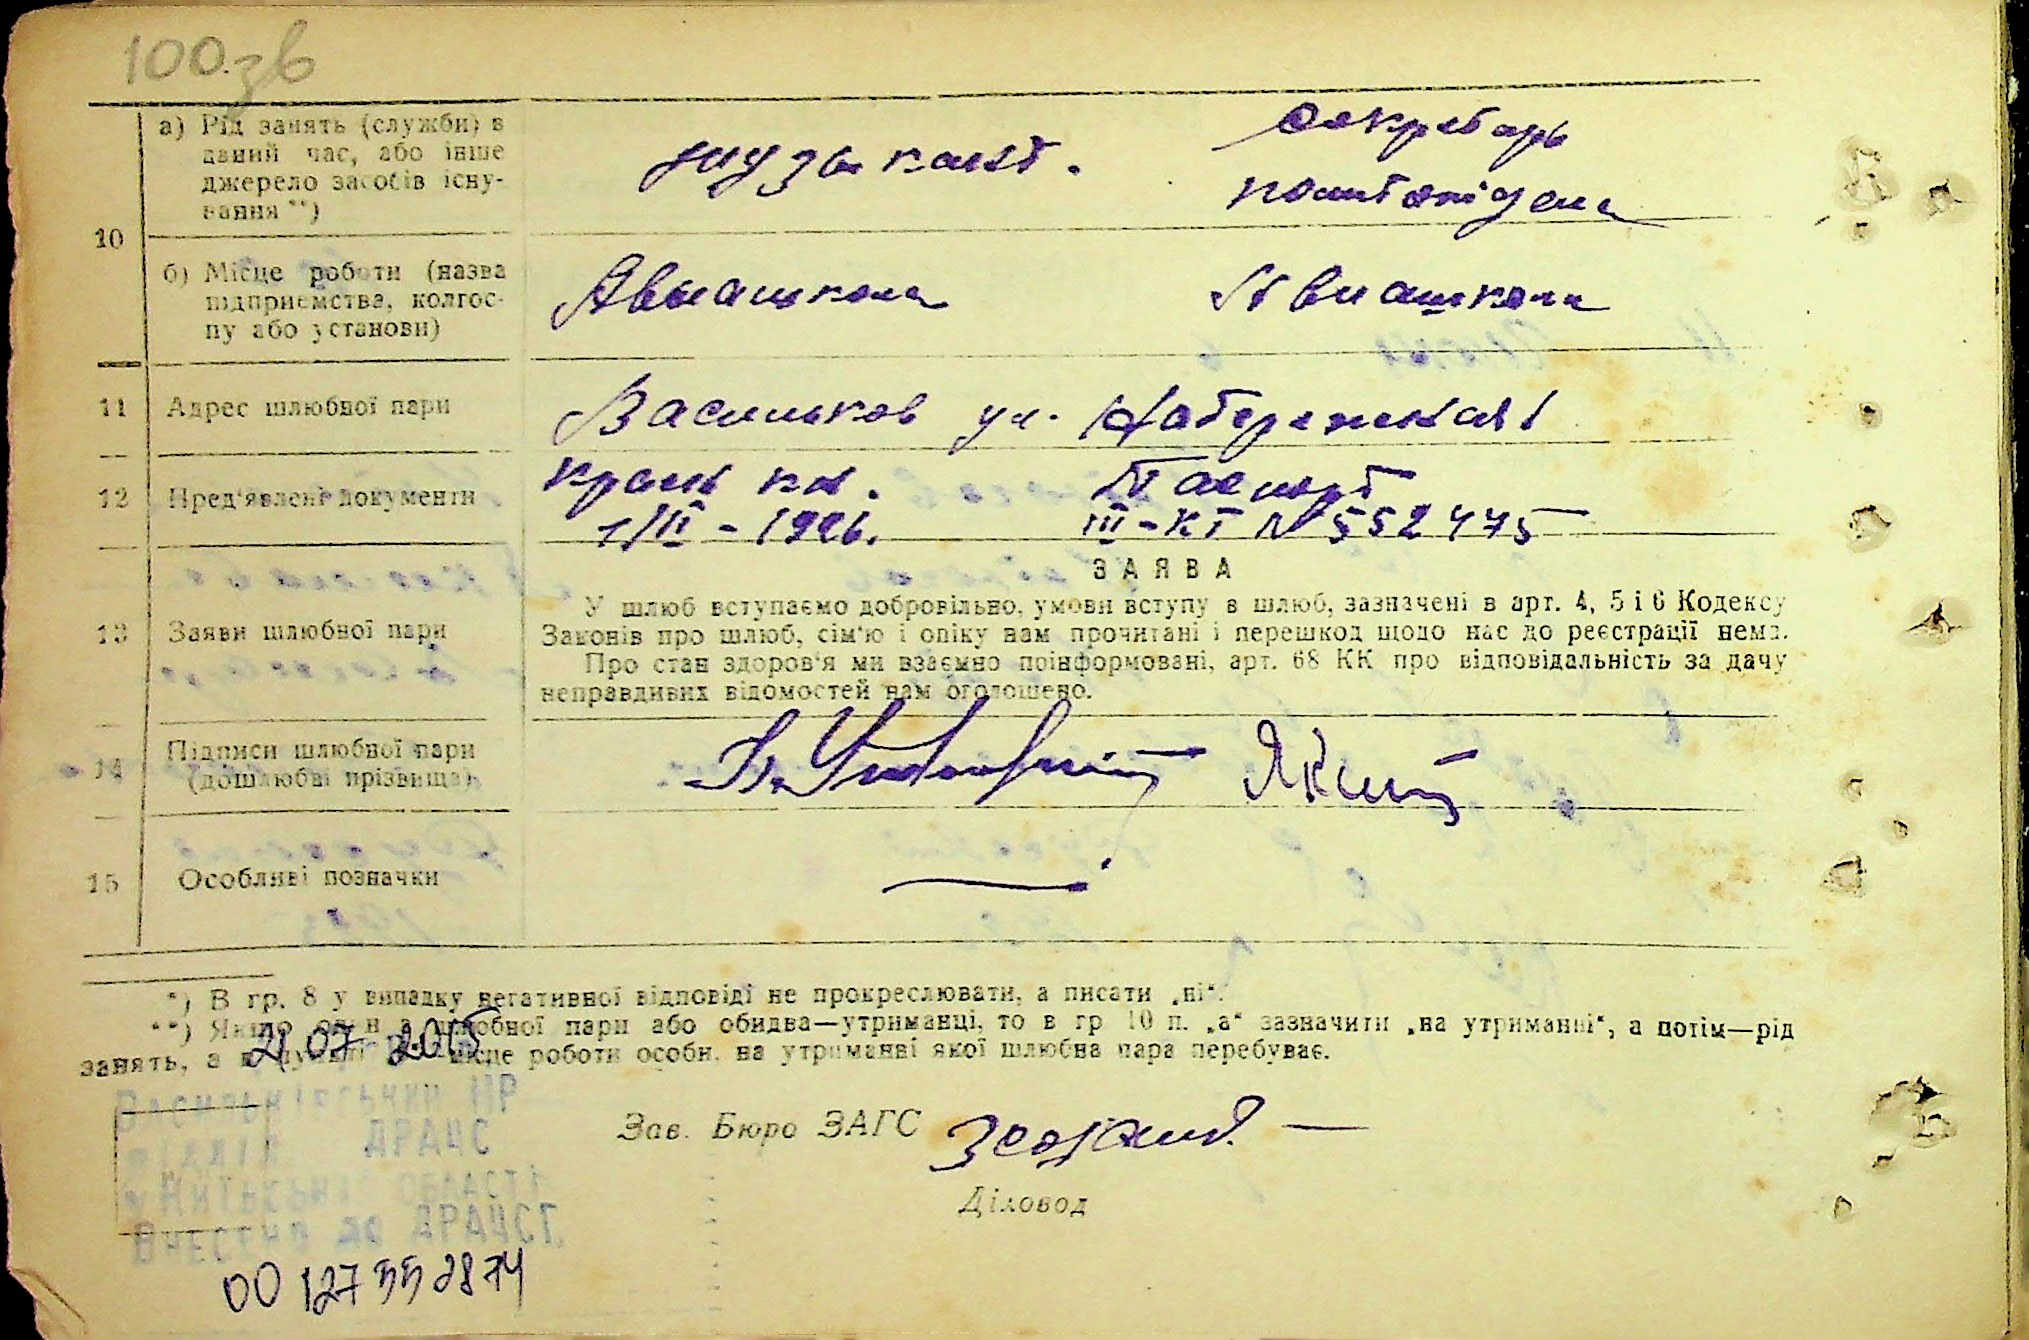 100.зв
10
а) Рід занять (служби) в
даний час, або інше
джерело засобів існу-
вання **)
музыкант.
секретарь
б) Місце роботи (назва
підприємства, колгос-
пу або установи)
Авиашкола
Авиашкола
11 Адрес шлюбної пари
Васильков ул. Набережная 1
12 Пред'явлені документи
кн.
1/III - 1926.
Паспорт
III-КТ № 552475
13 Заяви шлюбної пари
ЗАЯВА
У шлюб вступаємо добровільно, умови вступу в шлюб, зазначені в арт. 4, 5 і 6 Кодексу
Законів про шлюб, сім'ю і опіку нам прочитані і перешкод щодо нас до реєстрації нема.
Про стан здоров'я ми взаємно поінформовані, арт. 68 КК про відповідальність за дачу
неправдивих відомостей нам оголошено.
14 Підписи шлюбної пари
(дошлюбні прізвища)
15 Особливі позначки
*) В гр. 8 у випадку негативної відповіді не прокреслювати, а писати „ні“.
**) Якщо один з шлюбної пари або обидва—утриманці, то в гр 10 п. „а“ зазначити „на утриманні“, а потім—рід
занять, а місце роботи особи, на утриманні якої шлюбна пара перебуває.
21.07 2015
Васильківський МР
відділ ДРАЦС
Київській області
Внесено до ДРАЦСГ
00127552874
Зав. Бюро ЗАГС
Діловод